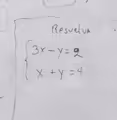 Resuelva
3x - y = 2
x + y = 4